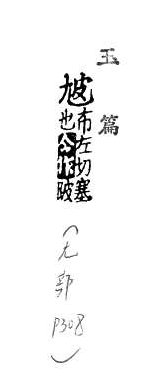 玉篇
㝿布左切蹇
也今作跛
(尢部
P308)